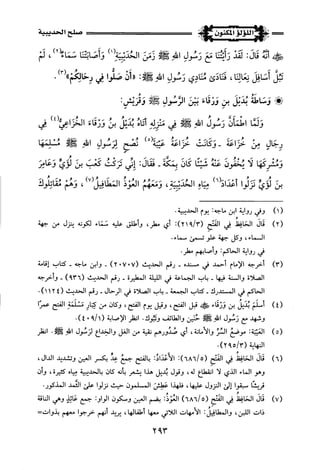 صلح الحديبية
اللؤلؤ المكنون
أنه قال: لقد رأيتنا مع رسول الله ﷺ زمن الحديبية (١)، وأصابتنا سماء (٢)، لم
تبل أسافل نعالنا، فنادى منادي رسول الله ﷺ: «أن صلوا في رحالكم» (٣).
وساطة بديل بن ورقاء بين الرسول ﷺ وقريش:
ولما اطمأن رسول الله ﷺ في منزله أتاه بديل بن ورقاء الخزاعي (٤) في
رجال من خزاعة ـ وكانت خزاعة عيبة (٥) نصح لرسول الله ﷺ مسلمها
ومشركها لا يخفون عنه شيئا كان بمكة ـ فقال: إني تركت كعب بن لؤي وعامر
بن لؤي نزلوا أعداد (٦) مياه الحديبية، ومعهم العوذ المطافيل (٧)، وهم مقاتلوك
(١) وفي رواية ابن ماجه: يوم الحديبية.
(٢) قال الحافظ في الفتح (٢١٩/٣): أي مطر، وأطلق عليه سماء لكونه ينزل من جهة
السماء، وكل جهة علو تسمى سماء.
في رواية الحاكم: وأصابهم مطر.
(٣) أخرجه الإمام أحمد في مسنده ـ رقم الحديث (٢٠٧٠٧) ـ وابن ماجه ـ كتاب إقامة
الصلاة والسنة فيها ـ باب الجماعة في الليلة المطيرة ـ رقم الحديث (٩٣٦) ـ وأخرجه
الحاكم في المستدرك ـ كتاب الجمعة ـ باب الصلاة في الرحال ـ رقم الحديث (١١٢٤).
(٤) أسلم بديل بن ورقاء ﷺ قبل الفتح، وقيل يوم الفتح، وكان من كبار مسلمة الفتح عمرا
وشهد مع رسول الله ﷺ حنين والطائف وتبوك. انظر الإصابة (٤٠٩/١).
(٥) العيبة: موضع السر والأمانة، أي صدورهم نقية من الغل والخداع لرسول الله ﷺ. انظر
النهاية (٢٩٥/٣).
(٦) قال الحافظ في الفتح (٦٨٦/٥): الأعداد: بالفتح جمع عد بكسر العين وتشديد الدال،
وهو الماء الذي لا انقطاع له، وقول بديل هذا يشعر بأنه كان بالحديبية مياه كثيرة، وأن
قريشا سبقوا إلى النزول عليها، فلهذا عطش المسلمون حيث نزلوا على الثمد المذكور.
(٧) قال الحافظ في الفتح (٦٨٦/٥): العوذ: بضم العين وسكون الواو: جمع عائذ وهي الناقة
ذات اللبن، والمطافيل: الأمهات اللاتي معها أطفالها، يريد أنهم خرجوا معهم بذوات=
٢٩٣